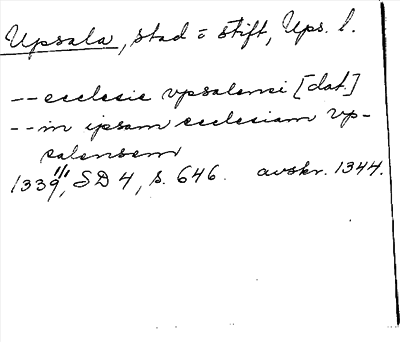 Upsala, stad = stift, Ups. l.
-- ecclesie vpsalensi [dat.]
-- in ipsam ecclesiam vp-
salensem
1339 1/11, SD 4, s. 646. avskr. 1344.